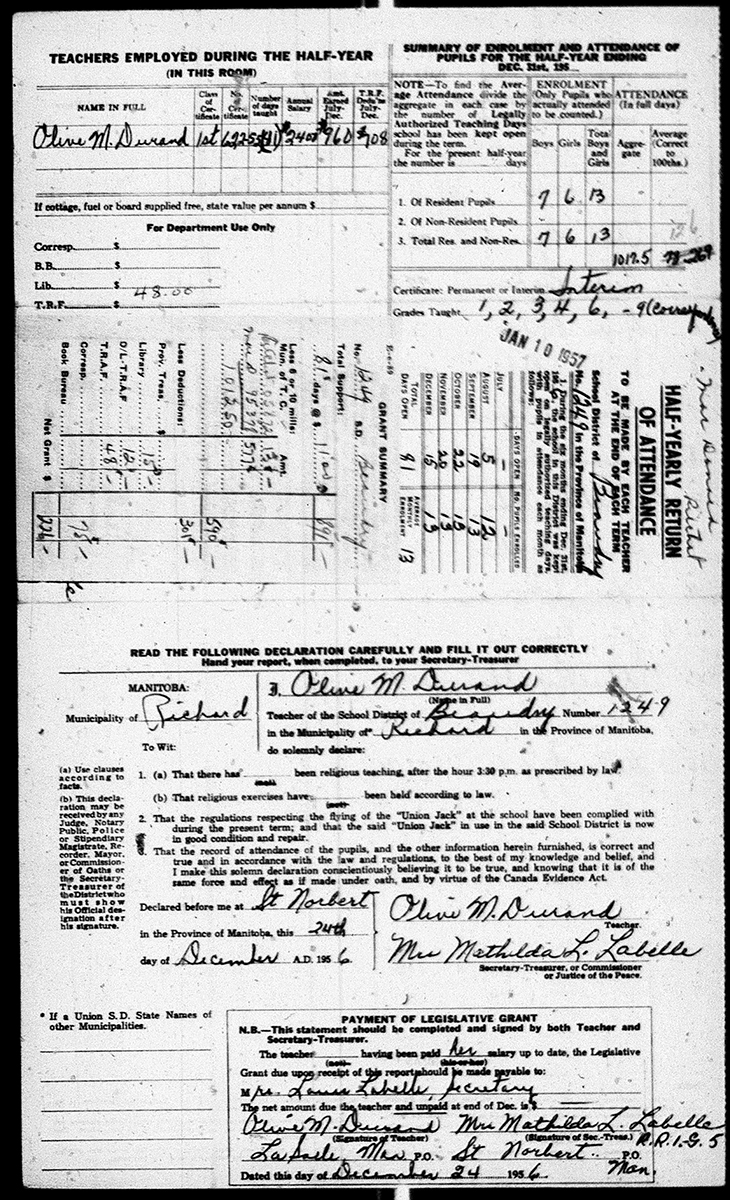 TEACHERS EMPLOYED DURING THE HALF-YEAR
(IN THIS ROOM)
NAME IN FULL
Class of Cer- tificate
No. of Cer- tificate
Number of days taught
Annual Salary
Amt. Earned July- Dec.
T.R.F. Deduc'ns July- Dec.
Olive M. Durand 1st
If cottage, fuel or board supplied free, state value per annum $
For Department Use Only
Corresp. $
B.B. $
Lib. $ 48.00
T.R.F. $
SUMMARY OF ENROLMENT AND ATTENDANCE OF
PUPILS FOR THE HALF-YEAR ENDING
DEC. 31st, 195
NOTE—To find the Aver-
age Attendance divide the
aggregate in each case by
the number of Legally
Authorized Teaching Days
school has been kept open
during the term.
For the present half-year
the number is days
ENROLMENT
(Only Pupils who
actually attended
to be counted.)
ATTENDANCE
(In full days)
Boys Girls
Total Boys and Girls
Aggre- gate
Average (Correct to 100ths.)
1. Of Resident Pupils 7 6 13
2. Of Non-Resident Pupils
3. Total Res. and Non-Res. 7 6 13
1017.5
Certificate: Permanent or Interim Interim
Grades Taught 1, 2, 3, 4, 6, - 9 (Correspondence)
JAN 10 1957
HALF-YEARLY RETURN
OF ATTENDANCE
TO BE MADE BY EACH TEACHER
AT THE END OF EACH TERM
School District of Beaudry
No. 1249 in the Province of Manitoba
1. During the six months ending Dec. 31st,
195 6, the school in this District was kept
open on legally authorized teaching days,
with pupils in attendance each month as
follows:
DAYS OPEN NO. PUPILS ENROLLED
JULY –
AUGUST 5 12
SEPTEMBER 19 13
OCTOBER 22 13
NOVEMBER 20 13
DECEMBER 15 13
TOTAL DAYS OPEN 81
AVERAGE MONTHLY ENROLMENT 13
GRANT SUMMARY
No. 1249 S.D. Beaudry
Total Support:
81 days @ $ 11.00 891 –
Less 8 or 10 mills: Amt.
Mun. of T. C.
Less Deductions:
Prov. Treas.
Library
D/L-T.R.A.F.
T.R.A.F. 48 –
Corresp.
Book Bureau
Net Grant $
READ THE FOLLOWING DECLARATION CAREFULLY AND FILL IT OUT CORRECTLY
Hand your report, when completed, to your Secretary-Treasurer
MANITOBA:
Municipality of Richard
To Wit:
I, Olive M. Durand
(Name in Full)
Teacher of the School District of Beaudry Number 1249
in the Municipality of* Richard in the Province of Manitoba,
do solemnly declare:
(a) Use clauses
according to
facts.
(b) This decla-
ration may be
received by any
Judge, Notary
Public, Police
or Stipendiary
Magistrate, Re-
corder, Mayor,
or Commission-
er of Oaths or
the Secretary-
Treasurer of
the District who
must show
his Official des-
ignation after
his signature.
1. (a) That there has been religious teaching, after the hour 3:30 p.m. as prescribed by law.
(not)
(b) That religious exercises have been held according to law.
(not)
2. That the regulations respecting the flying of the "Union Jack" at the school have been complied with
during the present term; and that the said "Union Jack" in use in the said School District is now
in good condition and repair.
3. That the record of attendance of the pupils, and the other information herein furnished, is correct and
true and in accordance with the law and regulations, to the best of my knowledge and belief, and
I make this solemn declaration conscientiously believing it to be true, and knowing that it is of the
same force and effect as if made under oath, and by virtue of the Canada Evidence Act.
Declared before me at St Norbert
in the Province of Manitoba, this 24th
day of December A.D. 195 6
Olive M. Durand
Teacher.
Mrs Mathilda L. Labelle
Secretary-Treasurer, or Commissioner
or Justice of the Peace.
* If a Union S.D. State Names of
other Municipalities.
PAYMENT OF LEGISLATIVE GRANT
N.B.—This statement should be completed and signed by both Teacher and
Secretary-Treasurer.
The teacher having been paid her salary up to date, the Legislative
(not) (his or her)
Grant due upon receipt of this report should be made payable to:
Mrs. Louis Labelle, Secretary
The net amount due the teacher and unpaid at end of Dec. is $
Olive M. Durand Mrs Mathilda L. Labelle
(Signature of Teacher) (Signature of Sec.-Treas.) R.R.1-G.5
La Salle, Man P.O. St Norbert P.O.
Man.
Dated this day of December 24 195 6